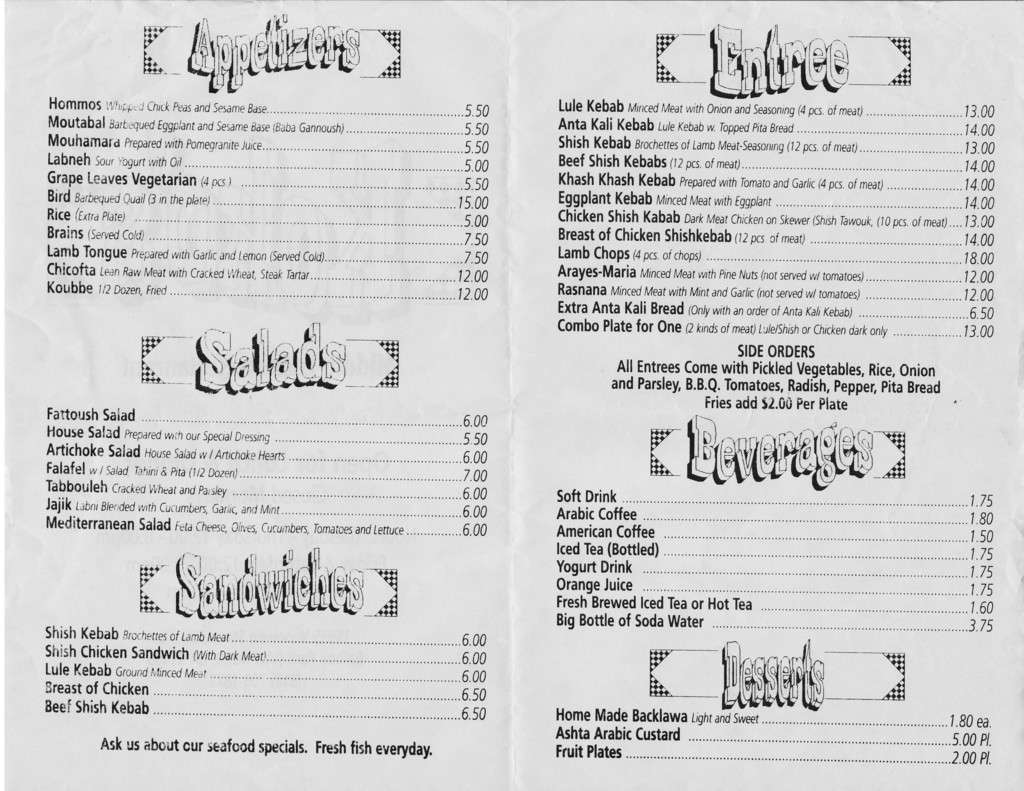 Appetizers
Hommos Whipped Chick Peas and Sesame Base 5.50
Moutabal Barbequed Eggplant and Sesame Base (Baba Gannoush) 5.50
Mouhamara Prepared with Pomegranite Juice 5.50
Labneh Sour Yogurt with Oil 5.00
Grape Leaves Vegetarian (4 pcs.) 5.50
Bird Barbequed Quail (3 in the plate) 15.00
Rice (Extra Plate) 5.00
Brains (Served Cold) 7.50
Lamb Tongue Prepared with Garlic and Lemon (Served Cold) 7.50
Chicofta Lean Raw Meat with Cracked Wheat, Steak Tartar 12.00
Koubbe 1/2 Dozen, Fried 12.00
Salads
Fattoush Salad 6.00
House Salad Prepared with our Special Dressing 5.50
Artichoke Salad House Salad w / Artichoke Hearts 6.00
Falafel w / Salad Tahini & Pita (1/2 Dozen) 7.00
Tabbouleh Cracked Wheat and Parsley 6.00
Jajik Labni Blended with Cucumbers, Garlic, and Mint 6.00
Mediterranean Salad Feta Cheese, Olives, Cucumbers, Tomatoes and Lettuce 6.00
Sandwiches
Shish Kebab Brochettes of Lamb Meat 6.00
Shish Chicken Sandwich (With Dark Meat) 6.00
Lule Kebab Ground Minced Meat 6.00
Breast of Chicken 6.50
Beef Shish Kebab 6.50
Ask us about our seafood specials. Fresh fish everyday.
Entree
Lule Kebab Minced Meat with Onion and Seasoning (4 pcs. of meat) 13.00
Anta Kali Kebab Lule Kebab w. Topped Pita Bread 14.00
Shish Kebab Brochettes of Lamb Meat-Seasoning (12 pec. of meat) 13.00
Beef Shish Kebabs (12 pcs. of meat) 14.00
Khash Khash Kebab Prepared with Tomato and Garlic (4 pcs. of meat) 14.00
Eggplant Kebab Minced Meat with Eggplant 14.00
Chicken Shish Kabab Dark Meat Chicken on Skewer (Shish Tawouk, (10 pcs. of meat) 13.00
Breast of Chicken Shishkebab (12 pcs. of meat) 14.00
Lamb Chops (4 pcs. of chops) 18.00
Arayes-Maria Minced Meat with Pine Nuts (not served w/ tomatoes) 12.00
Rasnana Minced Meat with Mint and Garlic (not served w/ tomatoes) 12.00
Extra Anta Kali Bread (Only with an order of Anta Kali Kebab) 6.50
Combo Plate for One (2 kinds of meat) Lule/Shish or Chicken dark only 13.00
SIDE ORDERS
All Entrees Come with Pickled Vegetables, Rice, Onion
and Parsley, B.B.Q. Tomatoes, Radish, Pepper, Pita Bread
Fries add $2.00 Per Plate
Beverages
Soft Drink 1.75
Arabic Coffee 1.80
American Coffee 1.50
Iced Tea (Bottled) 1.75
Yogurt Drink 1.75
Orange Juice 1.75
Fresh Brewed Iced Tea or Hot Tea 1.60
Big Bottle of Soda Water 3.75
Desserts
Home Made Backlawa Light and Sweet 1.80 ea.
Ashta Arabic Custard 5.00 Pl.
Fruit Plates 2.00 Pl.